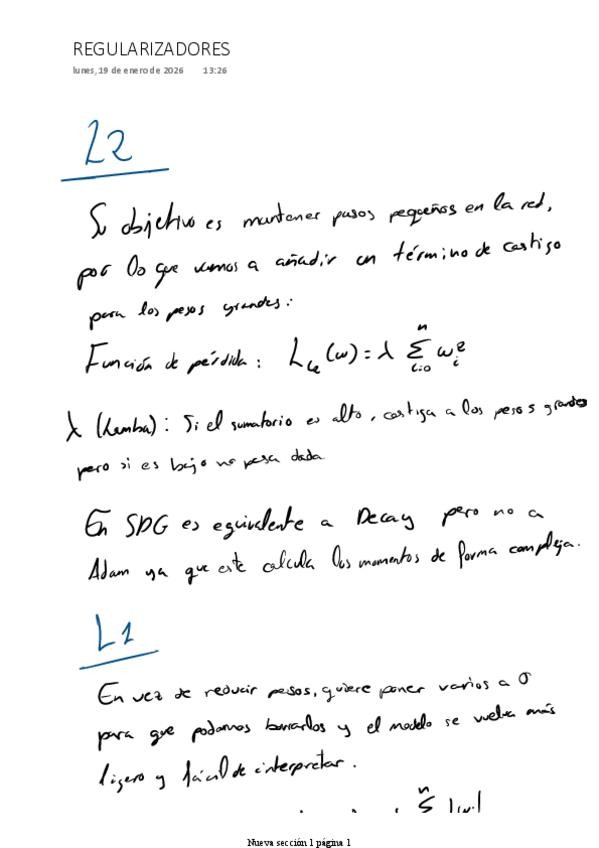 REGULARIZADORES
lunes, 19 de enero de 2026 13:26
L2
Su objetivo es mantener pesos pequeños en la red,
por lo que vamos a añadir un término de castigo
para los pesos grandes:
Función de pérdida: L (w) = λ Σ n i=0 w i 2
λ (Lamba): Si el sumatorio es alto, castiga a los pesos grandes
pero si es bajo no pasa dada
En SDG es equivalente a Decay pero no a
Adam ya que este calcula los momentos de forma compleja.
L1
En vez de reducir pesos, quiere poner varios a 0
para que podamos borrarlos y el modelo se vuelva más
ligero y fácil de interpretar.
n Σ |w|
Nueva sección 1 página 1